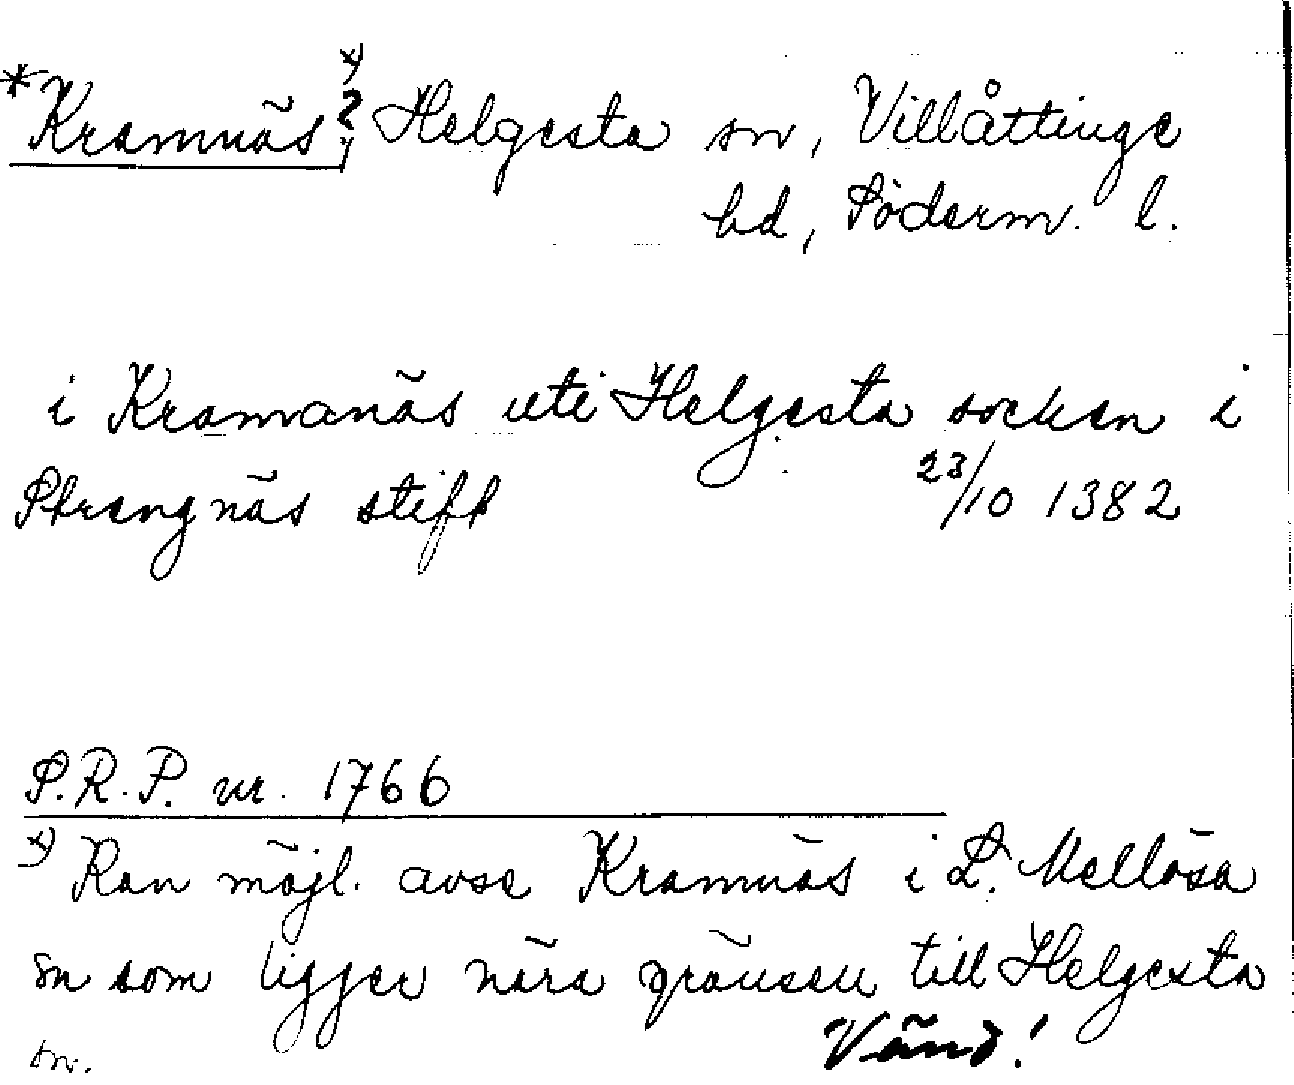 *Kramnäs?, x) Helgesta sn, Villåttinge
hd, Söderm. l.
i Kramanäs uti Helgesta socken i
Strengnäs stift 23/10 1382
S.R.P. nr. 1766
x) Kan möjl. avse Kramnäs i L. Mellösa
sn som ligger nära gränsen till Helgesta
sn.
Vänd!